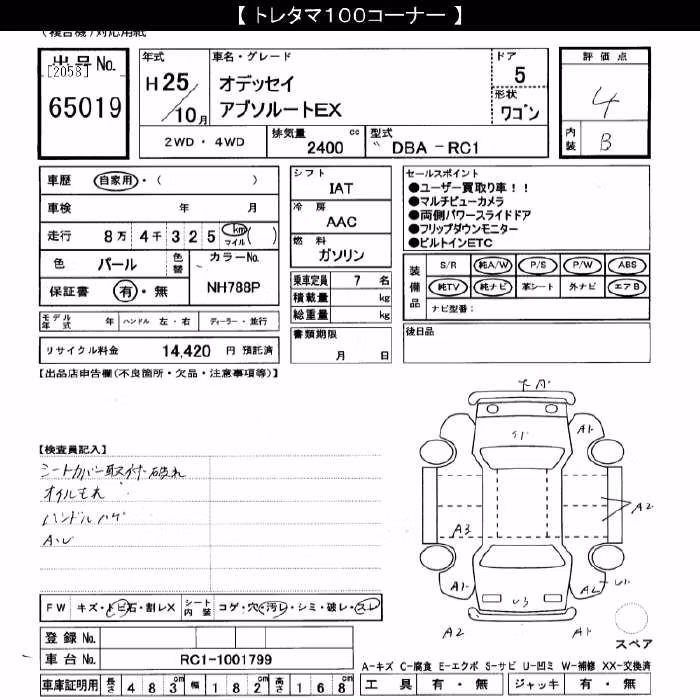 【 トレタマ100コーナー 】
(複合機)対応用紙
出品No.
[2058]
65019
年式
H25
10月
車名・グレード
オデッセイ
アブソルートEX
ドア
5
形状
ワゴン
評価点
4
内装
B
2WD・4WD
排気量 cc
2400
型式
DBA-RC1
車歴 自家用・( )
車検 年 月
走行 8万 4千 3 2 5 km マイル ( )
色 パール 色替
カラーNo.
NH788P
保証書 有・無
シフト
IAT
冷房
AAC
燃料
ガソリン
乗車定員 7 名
積載量 kg
総重量 kg
書類期限
月 日
セールスポイント
●ユーザー買取り車!!
●マルチビューカメラ
●両側パワースライドドア
●フリップダウンモニター
●ビルトインETC
装備品
S/R 純A/W P/S P/W ABS
純TV 純ナビ 革シート 外ナビ エアB
ナビ型番:
後日品
モデル年式 年 ハンドル 左・右 ディーラー・並行
リサイクル料金 14,420 円 預託済
【出品店申告欄(不良箇所・欠品・注意事項等)】
【検査員記入】
シートカバー取付 破れ
オイルもれ
ハンドルハゲ
A・U
A1
A1
A2
A3
A1
A2
U1
U3
A2
A1
スペア
FW キズ・トビ石・割レX シート内装 コゲ・穴・汚レ・シミ・破レ・スレ
登録No.
車台No. RC1-1001799
車庫証明用 長さ 483cm 幅 182cm 高さ 168cm
A-キズ C-腐食 E-エクボ S-サビ U-凹ミ W-補修 XX-交換済
工具 有・無 ジャッキ 有・無